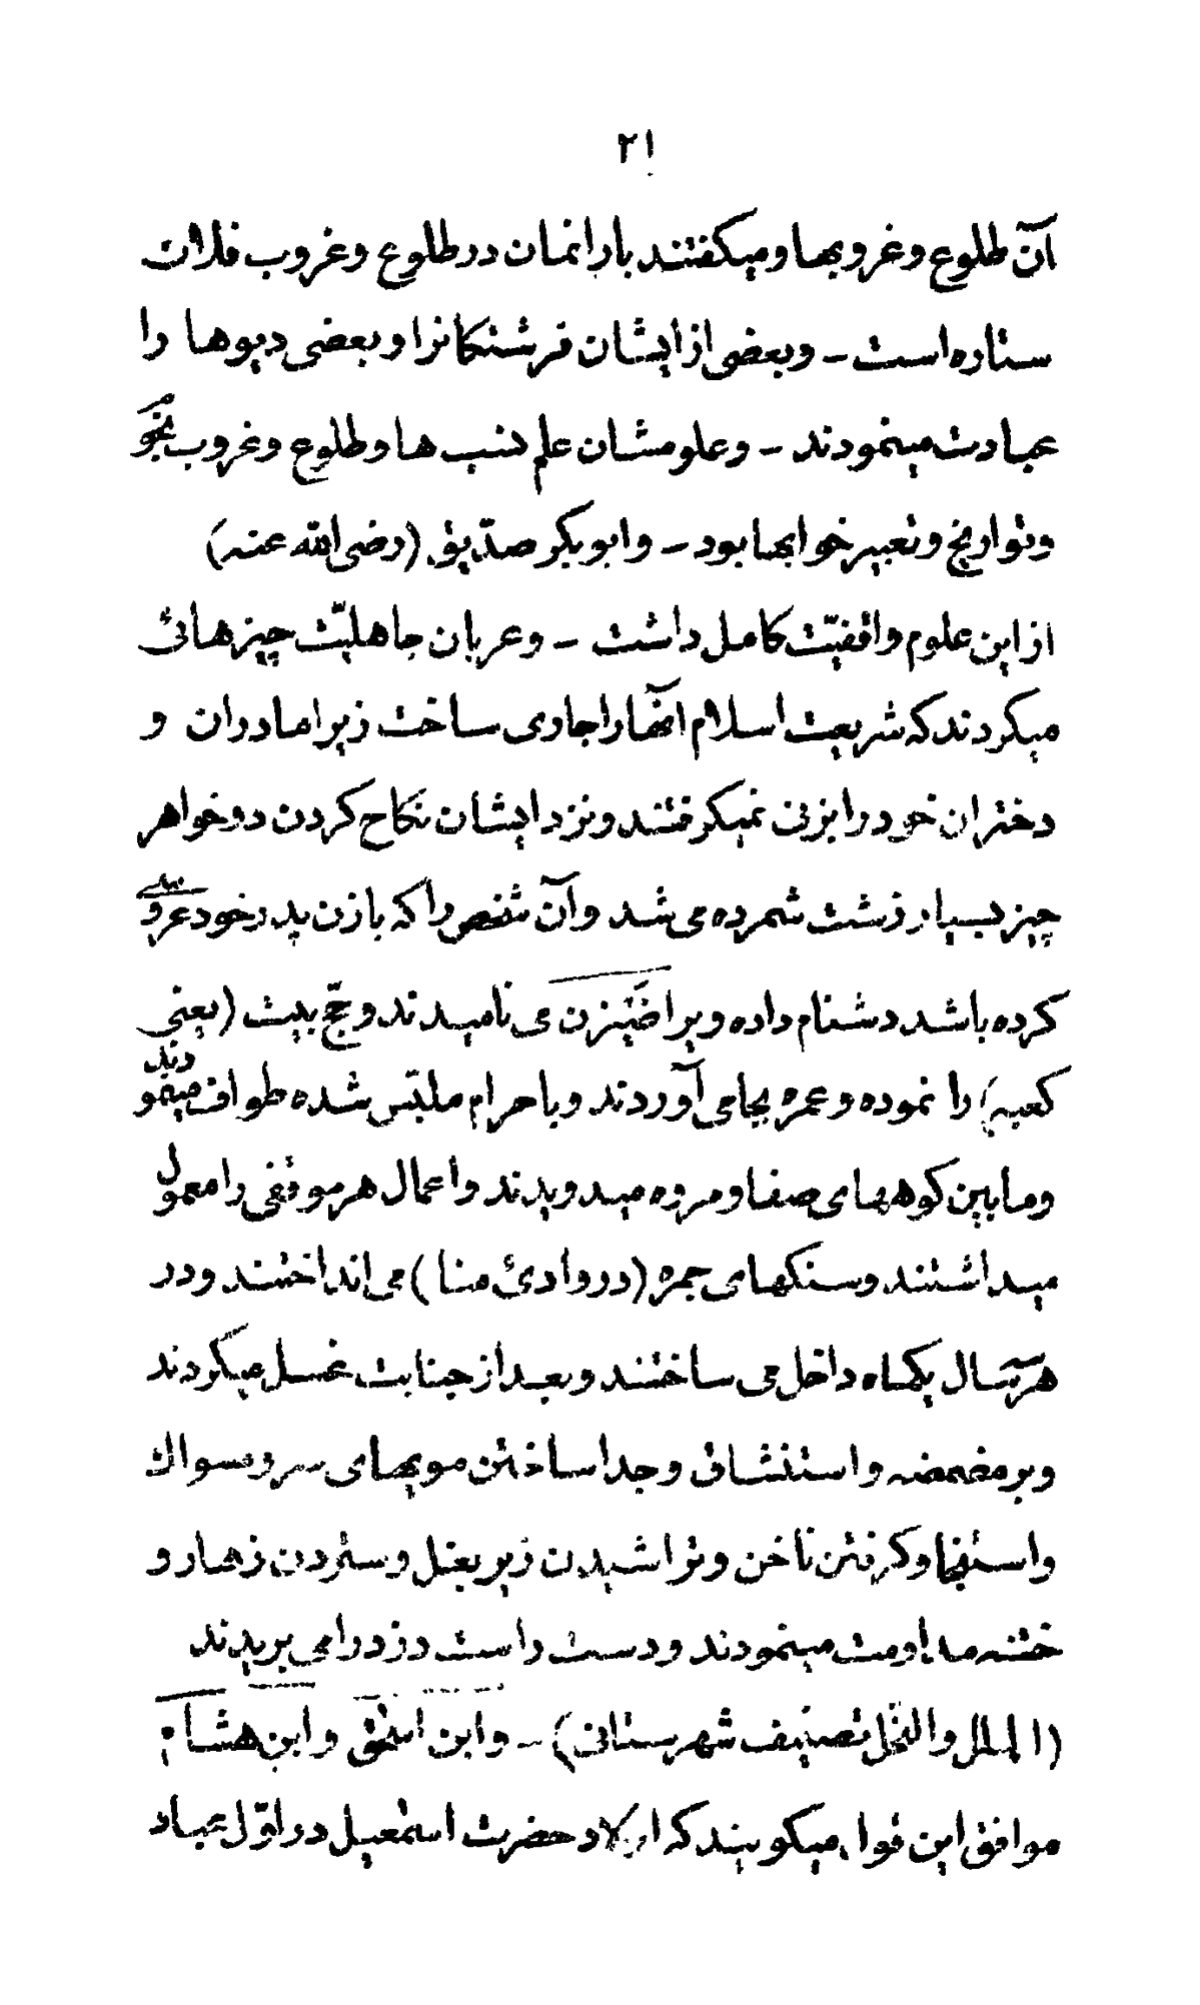 ٢١
آن طلوع وغروبها و میکفتند بارانمان در طلوع وغروب فلان
ستاره است – وبعضی از ایشان فرشتکانرا و بعضی دیوها را
عبادت مینمودند – وعلومشان علم نسب ها و طلوع وغروب نجو
وتواریخ وتعبیر خوابها بود – وابوبکر صدّیق (رضی الله عنه)
از این علوم واقفیّت کامل داشت – وعربان جاهلیّت چیزهائ
میکردند که شریعت اسلام آنها را جاری ساخت زیرا مادران و
دختران خود را بزنی نمیکرفتند ونزد ایشان نکاح کردن دوخواهر
چیز بسیار زشت شمرده می شد وآن شخص را که با زن پدر خود عرو
کرده باشد دشنام داده ویرا ضَیزن می نامیدند وحجّ بیت (یعنی
کعبه) را نموده وعمره بجا می آوردند وبا حرام ملبّس شده طواف مینمودند
ومابین کوههای صفا ومروه میدویدند واعمال هر موقفی را معمول
میداشتند وسنکهای جمره (در وادئ منا) می انداختند ودر
هر سه سال یکماه داخل می ساختند وبعد از جنابت غسل میکردند
وبر مضمضه واستنشاق وجدا ساختن مویهای سر ومسواک
واستنجا وکرفتن ناخن وتراشیدن زیر بغل وستردن زهار و
ختنه مداومت مینمودند ودست راست دزد را می بریدند
(الملل والنحل تصنیف شهرستانی) – وابن اسحٰق وابن هشام
موافق این قول میکویند که اولاد حضرت اسمٰعیل در اوّل عباد